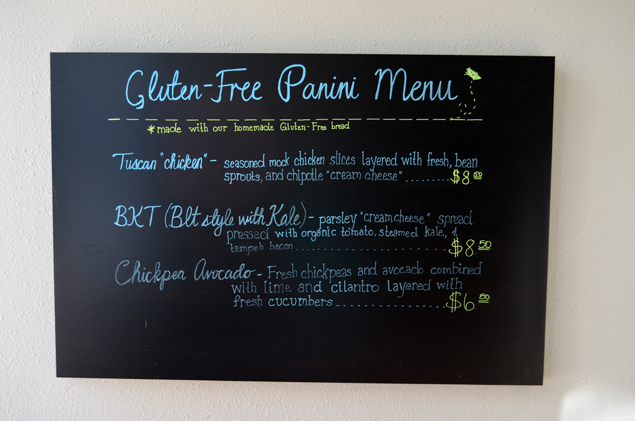 Gluten-Free Panini Menu
*made with our homemade Gluten-Free bread
Tuscan "chicken" - seasoned mock chicken slices layered with fresh, bean
sprouts, and chipotle "cream cheese" ......... $8.50
BKT (Blt style with Kale) - parsley "creamcheese" spread
pressed with organic tomato, steamed kale, &
tempeh bacon .............................. $8.50
Chickpea Avocado - Fresh chickpeas and avocado combined
with lime and cilantro layered with
fresh cucumbers .................... $6.50